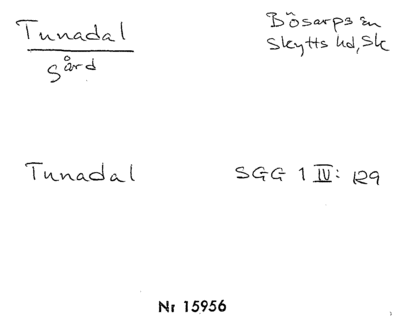 Tunadal
gård
Bösarps sn
Skytts hd, Sk
Tunadal
SGG 1 IV: 129
Nr 15956